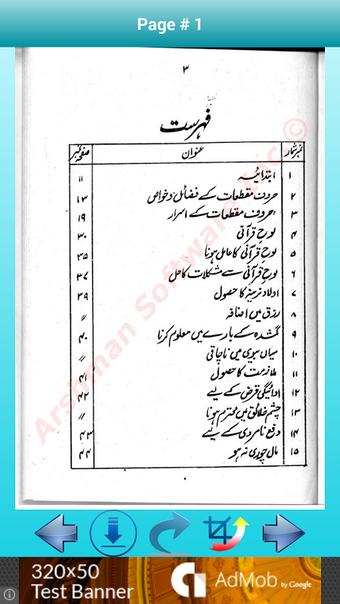 Page # 1
۳
فہرست
نمبرشمار عنوان صفحہ نمبر
۱ ابتدائیہ ۱۱
۲ حروف مقطعات کے فضائل و خواص ۱۳
۳ حروف مقطعات کے اسرار ۱۹
۴ لوح قرآنی ۳۰
۵ لوح قرآنی کا عامل ہونا ۳۵
۶ لوح قرآنی سے مشکلات کا حل ۳۷
۷ اولاد نرینہ کا حصول ۳۹
۸ رزق میں اضافہ 〃
۹ گمشدہ کے بارے میں معلوم کرنا ۴۰
۱۰ میاں بیوی میں ناچاقی 〃
۱۱ ملازمت کا حصول ۴۱
۱۲ ادائیگی قرض کے لیے ۴۲
۱۳ چشم خلائق میں محترم ہونا 〃
۱۴ دفع نامردی کے لیے ۴۳
۱۵ مال چوری نہ ہو ۴۴
Arshman Software Inc ©
320x50
Test Banner
AdMob by Google